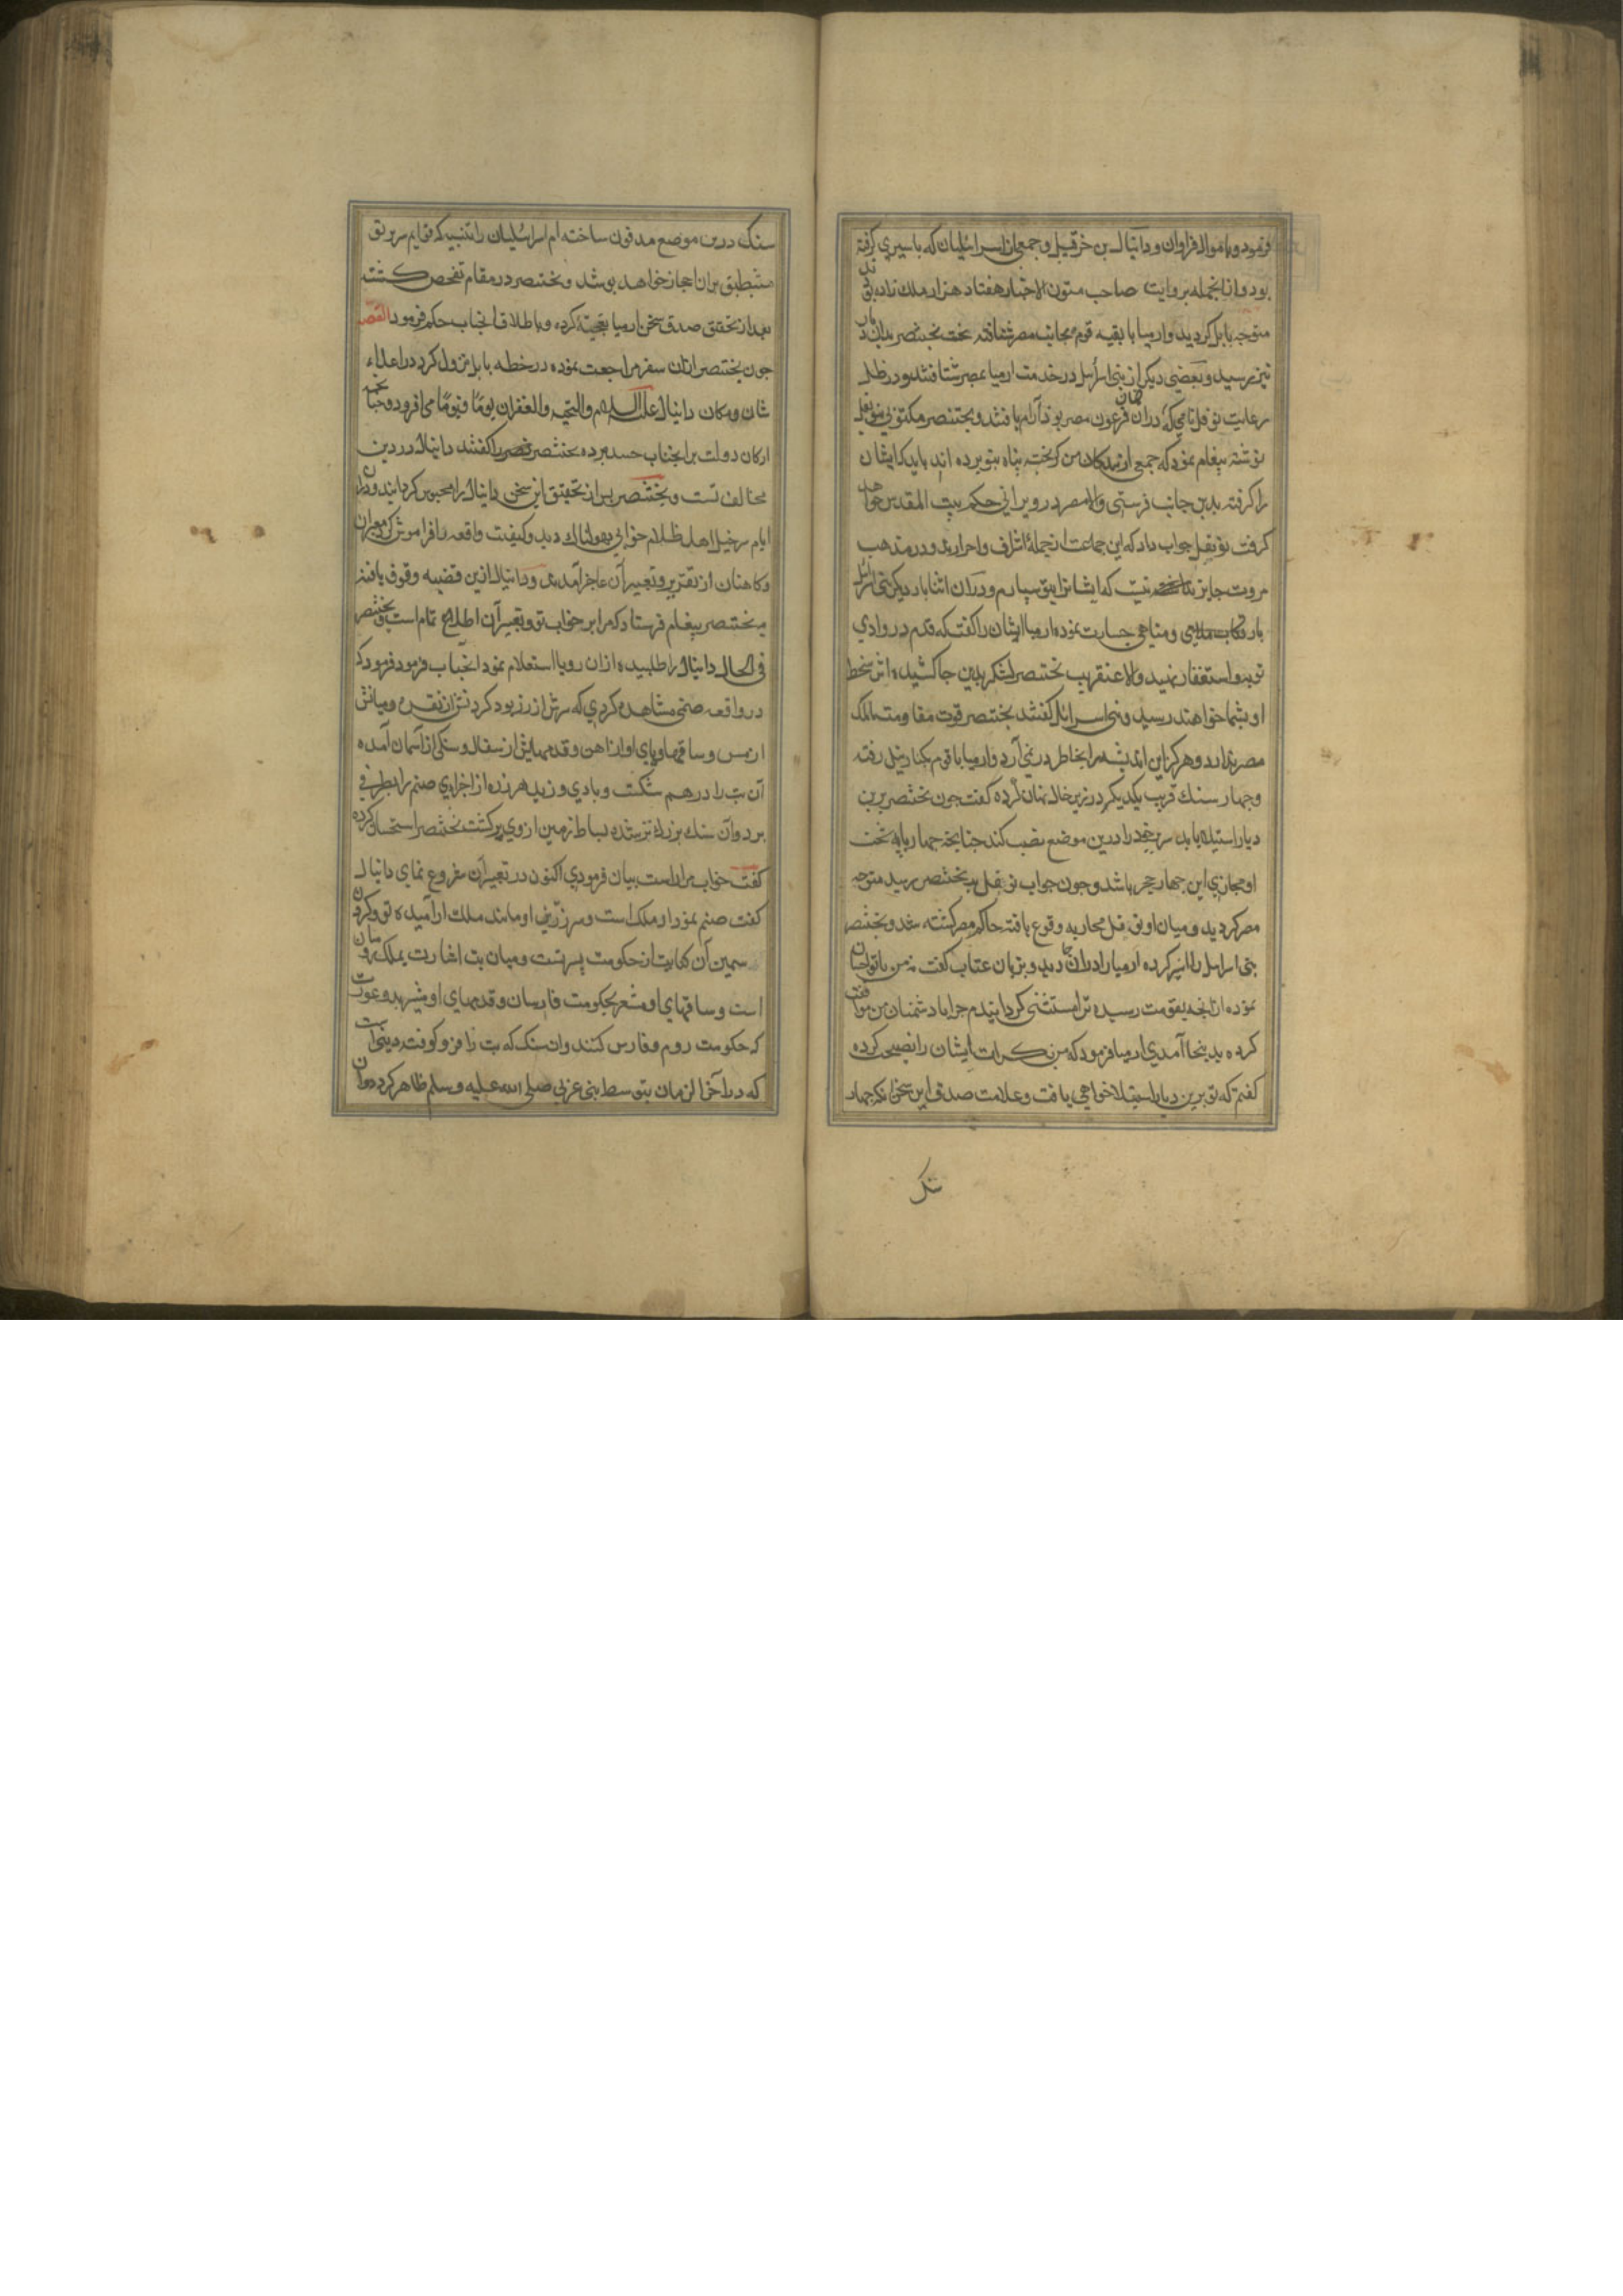 فرمود و با موال فراوان و دانیال بن خرقیل و جمعی از اسرائیلیان که باسیری گرفته
بود و از انجمله بروایت صاحب متون الاخبار هفتاد هزار ملک زاده بودند
متوجه بابل کردید و ارمیا با بقیه قوم بجانب مصر شتافته بخت نصر بدان دیار
نیز برسید و بعضی دیگر از بنی اسرائیل در خدمت ارمیا بمصر شتافتند و در ظل
رعایت نوفل نامی که دران زمان فرعون مصر بود آرام یافتند و بختنصر مکتوبی بنوفل
نوشته پیغام نمود که جمعی از بندکان من کریخته پناه بتو برده اند باید که ایشان
را گرفته بدین جانب فرستی والا مصر در ویرانی حکم بیت المقدس خواهد
گرفت نوفل جواب داد که این جماعت از جملهٔ اشراف و احرارند و در مذهب
مروت جایز نیست که ایشانرا بتو سپارم و دران اثنا بار دیکر بنی اسرائیل
بارتکاب ملاهی و مناهی جسارت نموده ارمیا ایشان را گفت که قدم در وادی
توبه و استغفار نهید والا عنقریب بختنصر لشکر بدین جا کشیده اثر سخط
او بشما خواهند رسید و بنی اسرائیل گفتند بختنصر قوت مقاومت مالک
مصر ندارد و هرگز این اندیشه را بخاطر در نمی آرد و ارمیا با قوم بکنار نیل رفته
و چهار سنک قریب یکدیکر در زیر خاک نهان کرده گفت چون بختنصر برین
دیار استیلا یابد سریر خود را درین موضع نصب کند چنانچه چهار پایه تخت
او محاذی این چهار حجر باشد و چون جواب نوفل به بختنصر رسید متوجه
مصر کردید و میان او و نوفل محاربه وقوع یافته حاکم مصر کشته شد و بختنصر
بنی اسرائیل را اسیر کرده ارمیا را دران میان دید و بزبان عتاب گفت نه من با تو احسان
نموده از انچه بقومت رسیده ترا مستثنی کردانیدم چرا با دشمنان من موافقت
کرده بدینجا آمدی ارمیا فرمود که من بکرات ایشان را نصیحت کرده
گفتم که تو برین دیار استیلا خواهی یافت و علامت صدق این سخن انکه چهار
سنک
سنک درین موضع مدفون ساخته ام اسرائیلیان را تنبیه که قوایم سریر تو
منطبق بران احجار خواهد بود شد و بختنصر در مقام تفحص کشته
بعد از تحقق صدق سخن ارمیا تعجب کرده و باطلاق انجناب حکم فرمود القصه
چون بختنصر ازان سفر مراجعت نموده در خطه بابل نزول کرد در اعلاء
شان و مکان دانیال علیه السلام والتحیه والغفران یومًا فیومًا می افزود و جمعی
ارکان دولت بر انجناب حسد برده بختنصر را گفتند دانیال در دین
مخالف تست و بختنصر پس از تحقیق این سخن دانیال را محبوس کردانید و دران
ایام سرخیل اهل ظلام خوابی هولناک دید و کیفیت واقعه را فراموش کرد و معبران
و کاهنان از تقریر و تعبیر آن عاجز آمدند و دانیال ازین قضیه وقوف یافته
به بختنصر پیغام فرستاد که مرا بر خواب تو و تعبیر آن اطلاع تمام است و بختنصر
فی الحال دانیال را طلبیده ازان رویا استعلام نمود انجناب فرمود که
در واقعه صنمی مشاهده کردی که سرش از زر بود کردنش از نقره و میانش
از مس و ساقها و پای او از اهن و قدمهایش از سفال و سنکی از آسمان آمده
آن بت را در هم شکست و بادی وزید هر ذره از اجزای صنم را بطرفی
برد و آن سنک بزرک تر شده بساط زمین از وی پر کشت بختنصر استحسان کرده
گفت خواب مرا راست بیان فرمودی اکنون در تعبیر آن شروع نمای دانیال
گفت صنم نمودار ملک است و سر زرین او مانند ملک ارامیده تو و کردن
سمین آن کنایت از حکومت پسر تست و میان بت اشارت بملک رومیان
است و ساقهای او مشعر بحکومت فارسان و قدمهای او مشیر بدو عورت
که حکومت روم و فارس کنند و ان سنک که بت را فرو کوفت دینی است
که در آخر الزمان بتوسط نبی عربی صلی الله علیه و سلم ظاهر کردد و ان